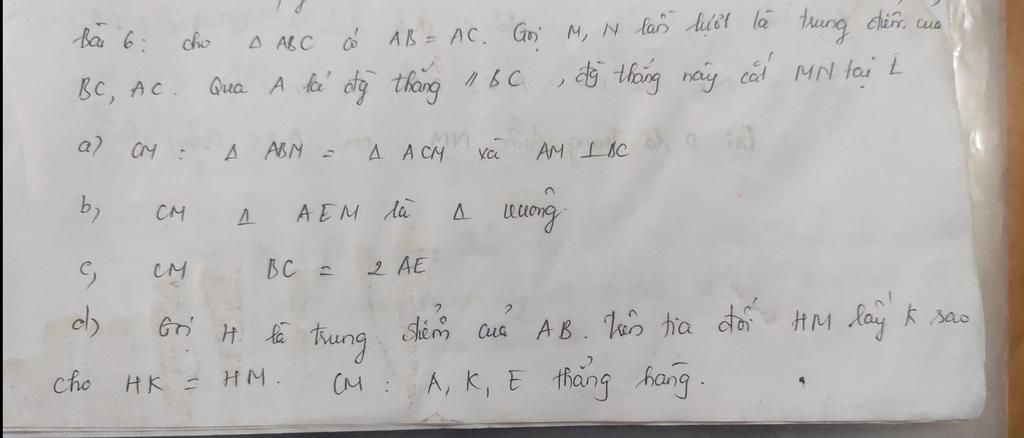 Bài 6: cho Δ ABC có AB = AC. Gọi M, N lần lượt là trung điểm của
BC, AC. Qua A kẻ đg thẳng // BC, đg thẳng này cắt MN tại E
a) CM: Δ ABM = Δ ACM và AM ⊥ BC
b, CM Δ AEM là Δ vuông.
c, CM BC = 2 AE
d) Gọi H là trung điểm của AB. Trên tia đối HM lấy K sao
cho HK = HM. CM: A, K, E thẳng hàng.